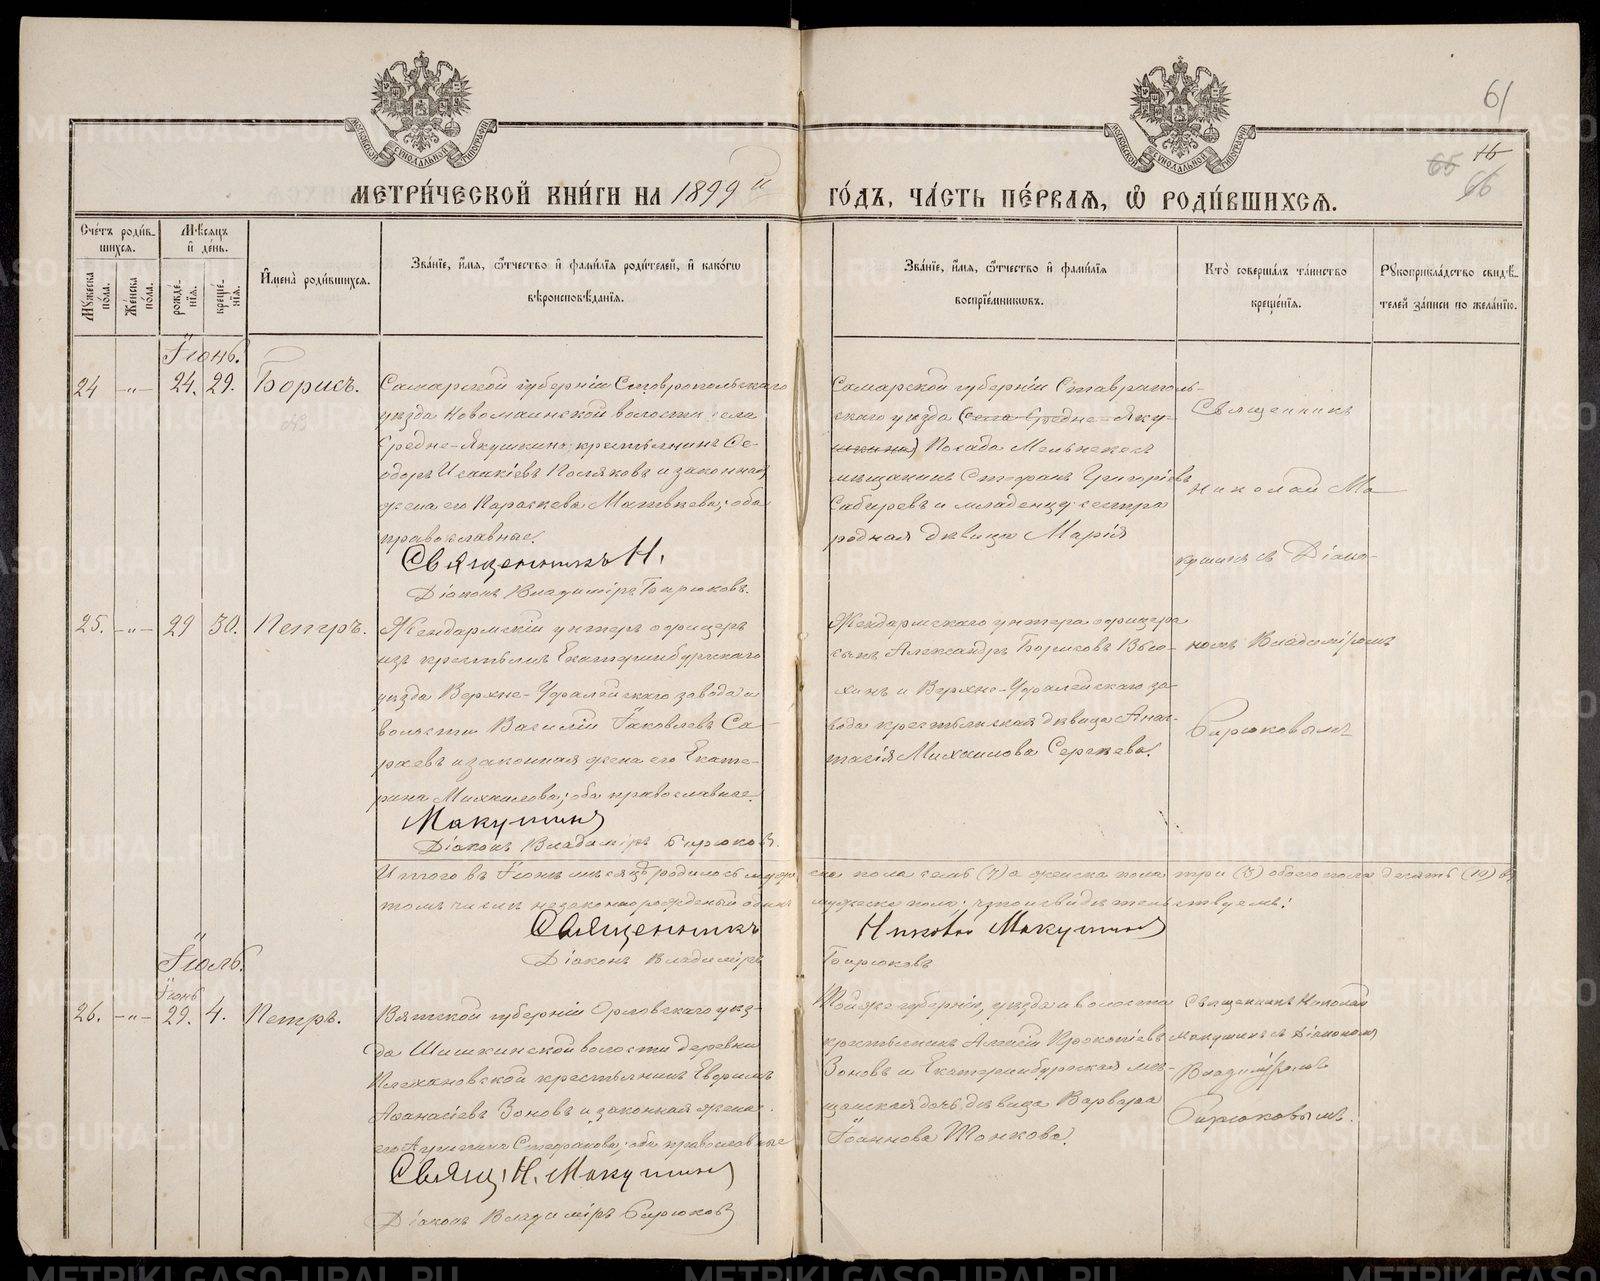 61
65 16
66
МОСКОВСКОЙ СУНОДАЛЬНОЙ ТИПОГРАФІИ
МОСКОВСКОЙ СУНОДАЛЬНОЙ ТИПОГРАФІИ
МЕТРИ́ЧЕСКОЙ КНИ́ГИ НА 1899 й ГО́ДЪ, ЧА́СТЬ ПЕ́РВАѦ, Ѡ РОДИ́ВШИХСѦ.
Сче́тъ роди́вшихся.
Мѣ́сяцъ и҆ де́нь.
Му́жеска по́ла.
Же́нска по́ла.
рожде́нїѧ.
креще́нїѧ.
И҆мена̀ роди́вшихсѧ.
Зва́нїе, и҆́мѧ, ѻ҆́тчество и҆ фами́лїѧ роди́телей, и҆ како́гѡ
вѣроисповѣ́данїѧ.
Зва́нїе, и҆́мѧ, ѻ҆́тчество и҆ фами́лїѧ
воспрїе́мникѡвъ.
Кто̀ соверша́лъ та́инство
креще́нїѧ.
Рꙋкоприкла́дство свидѣ́телей за́писи по жела́нїю.
Іюнь.
24 -"- 24. 29. Борисъ.
Самарской губерніи Ставропольскаго
уѣзда Новомаинской волости села
Средне-Якушкина крестьянинъ Ѳе-
одоръ Исаакіевъ Поляковъ и законная
жена его Параскева Матвѣева; оба
православные.
Священникъ Н.
Діаконъ Владиміръ Бирюковъ.
Самарской губерніи Ставрополь-
скаго уѣзда (села Средне-Яку-
шкина) Посада Мелекесса
мѣщанинъ Стефанъ Григорьевъ
и младенцу сестра
родная дѣвица Марія
Священникъ
Николай Ма
кушинъ съ Діако-
25. -"- 29 30. Петръ.
Жендармскій унтеръ офицеръ
изъ крестьянъ Екатеринбургскаго
уѣзда Верхне-Уфалейскаго завода и
волости Василій Іаковлевъ Са-
раевъ и законная жена его Екате-
рина Михаилова; оба православные.
Макушинъ
Діаконъ Владиміръ Бирюковъ.
Жендармскаго унтера офицера
сынъ Александръ Борисовъ Вью-
хинъ и Верхне-Уфалейскаго за-
вода крестьянская дѣвица Анас-
тасія Михаилова Сергѣева.
номъ Владиміромъ
Бирюковымъ
Итого въ Іюнѣ мѣсяцѣ родилось муже ска пола семь (7) а женска пола три (3) обоего пола десять (10) въ
томъ числѣ незаконнорожденый одинъ мужеска пола; что и свидѣтельствуемъ:
Священникъ Николай Макушинъ
Діаконъ Владиміръ Бирюковъ
Іюль.
Іюнь
26. -"- 29. 4. Петръ.
Вятской губерніи Орловскаго уѣз-
да Шишкинской волости деревни
Плехановской крестьянинъ Евфимъ
Аѳанасіевъ Зоновъ и законная жена
его Стефанова; оба православные
Свящ. Н. Макушинъ
Діаконъ Владиміръ Бирюковъ
Той же губерніи, уѣзда и волости
крестьянинъ Алексій Прокопіевъ
Зоновъ и Екатеринбургская мѣ-
щанская дочь дѣвица Варвара
Іоаннова Тонкова.
Священникъ Николай
Макушинъ съ Діакономъ
Владиміромъ
Бирюковымъ.
METRIKI.GASO-URAL.RU